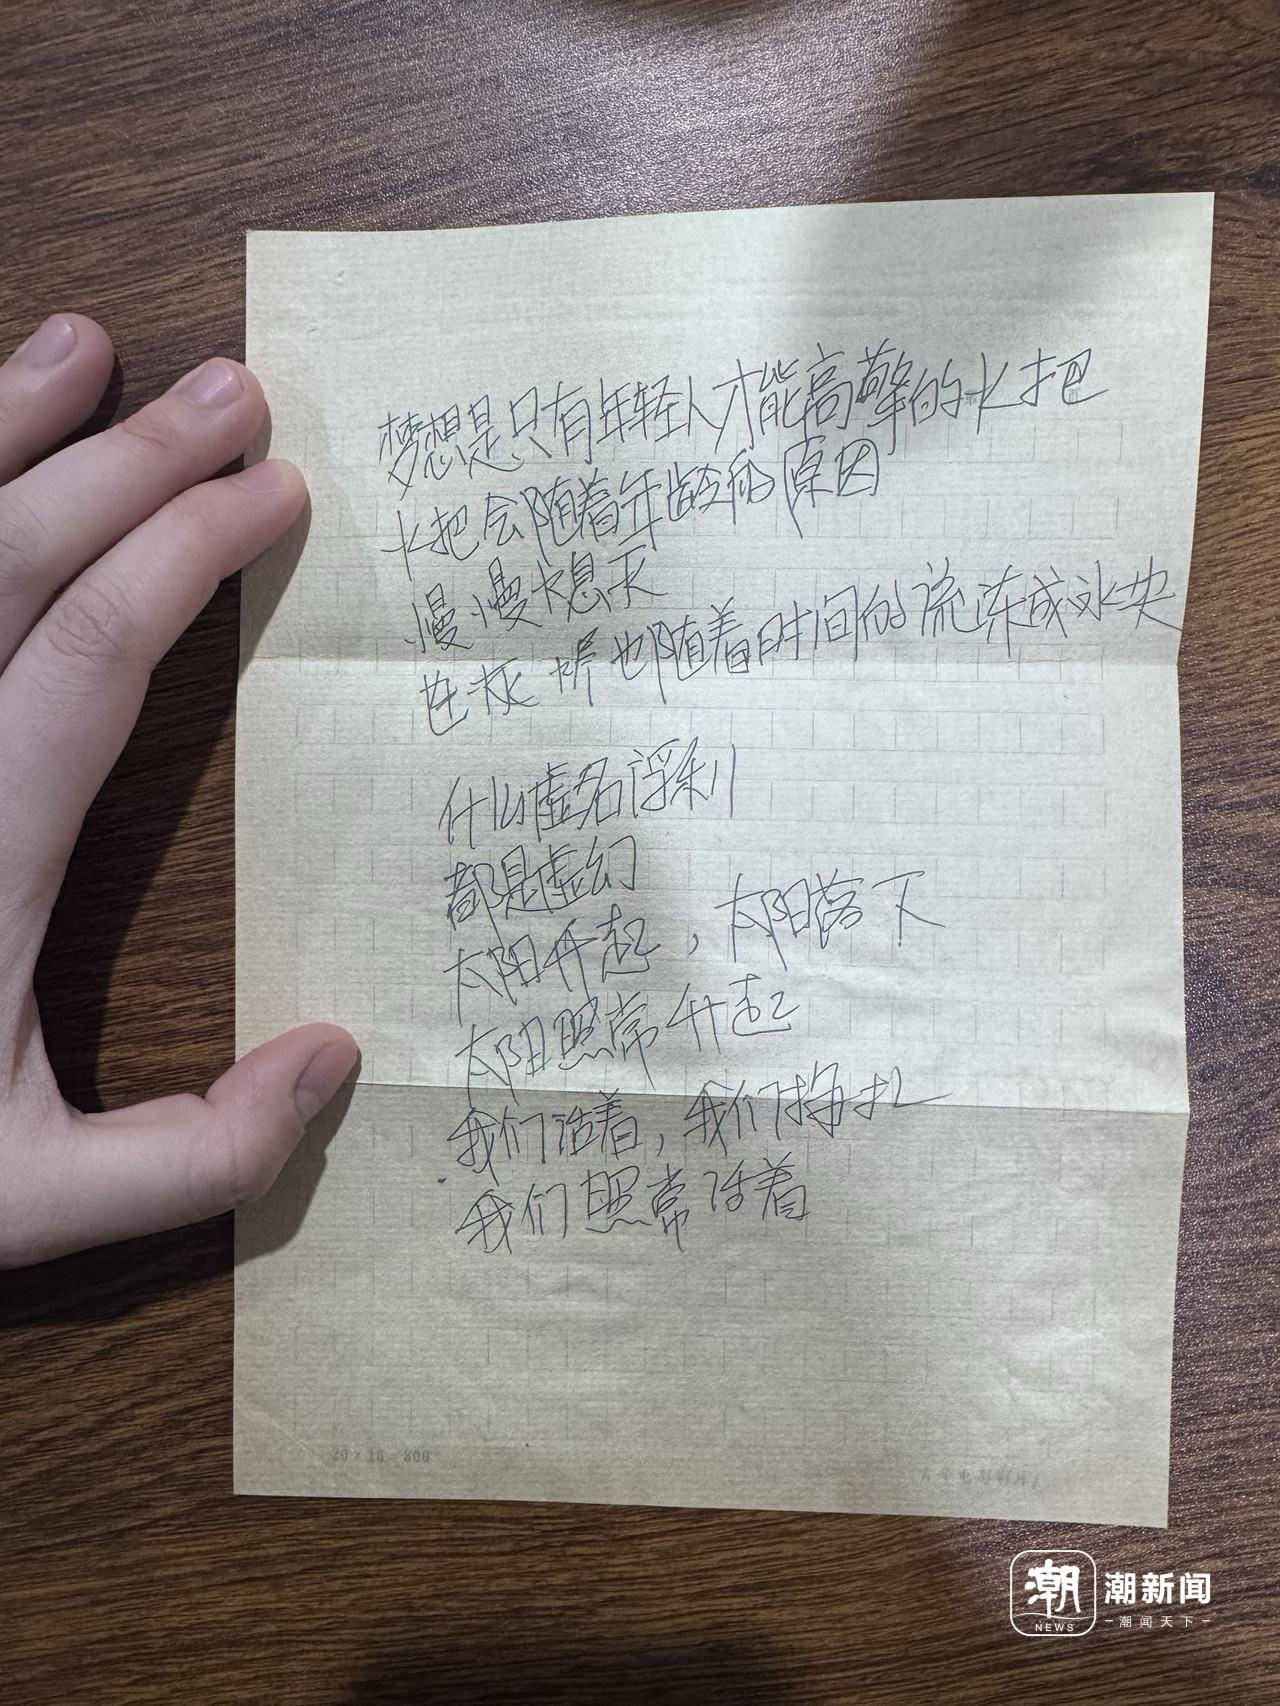 梦想是只有年轻人才能高擎的火把
火把会随着年龄的原因
慢慢火息灭
连灰烬也随着时间的流冻成冰块
什么虚名浮利
都是虚幻
太阳升起，太阳落下
太阳照常升起
我们活着，我们挣扎
我们照常活着
20×16=800
潮新闻
NEWS
潮闻天下